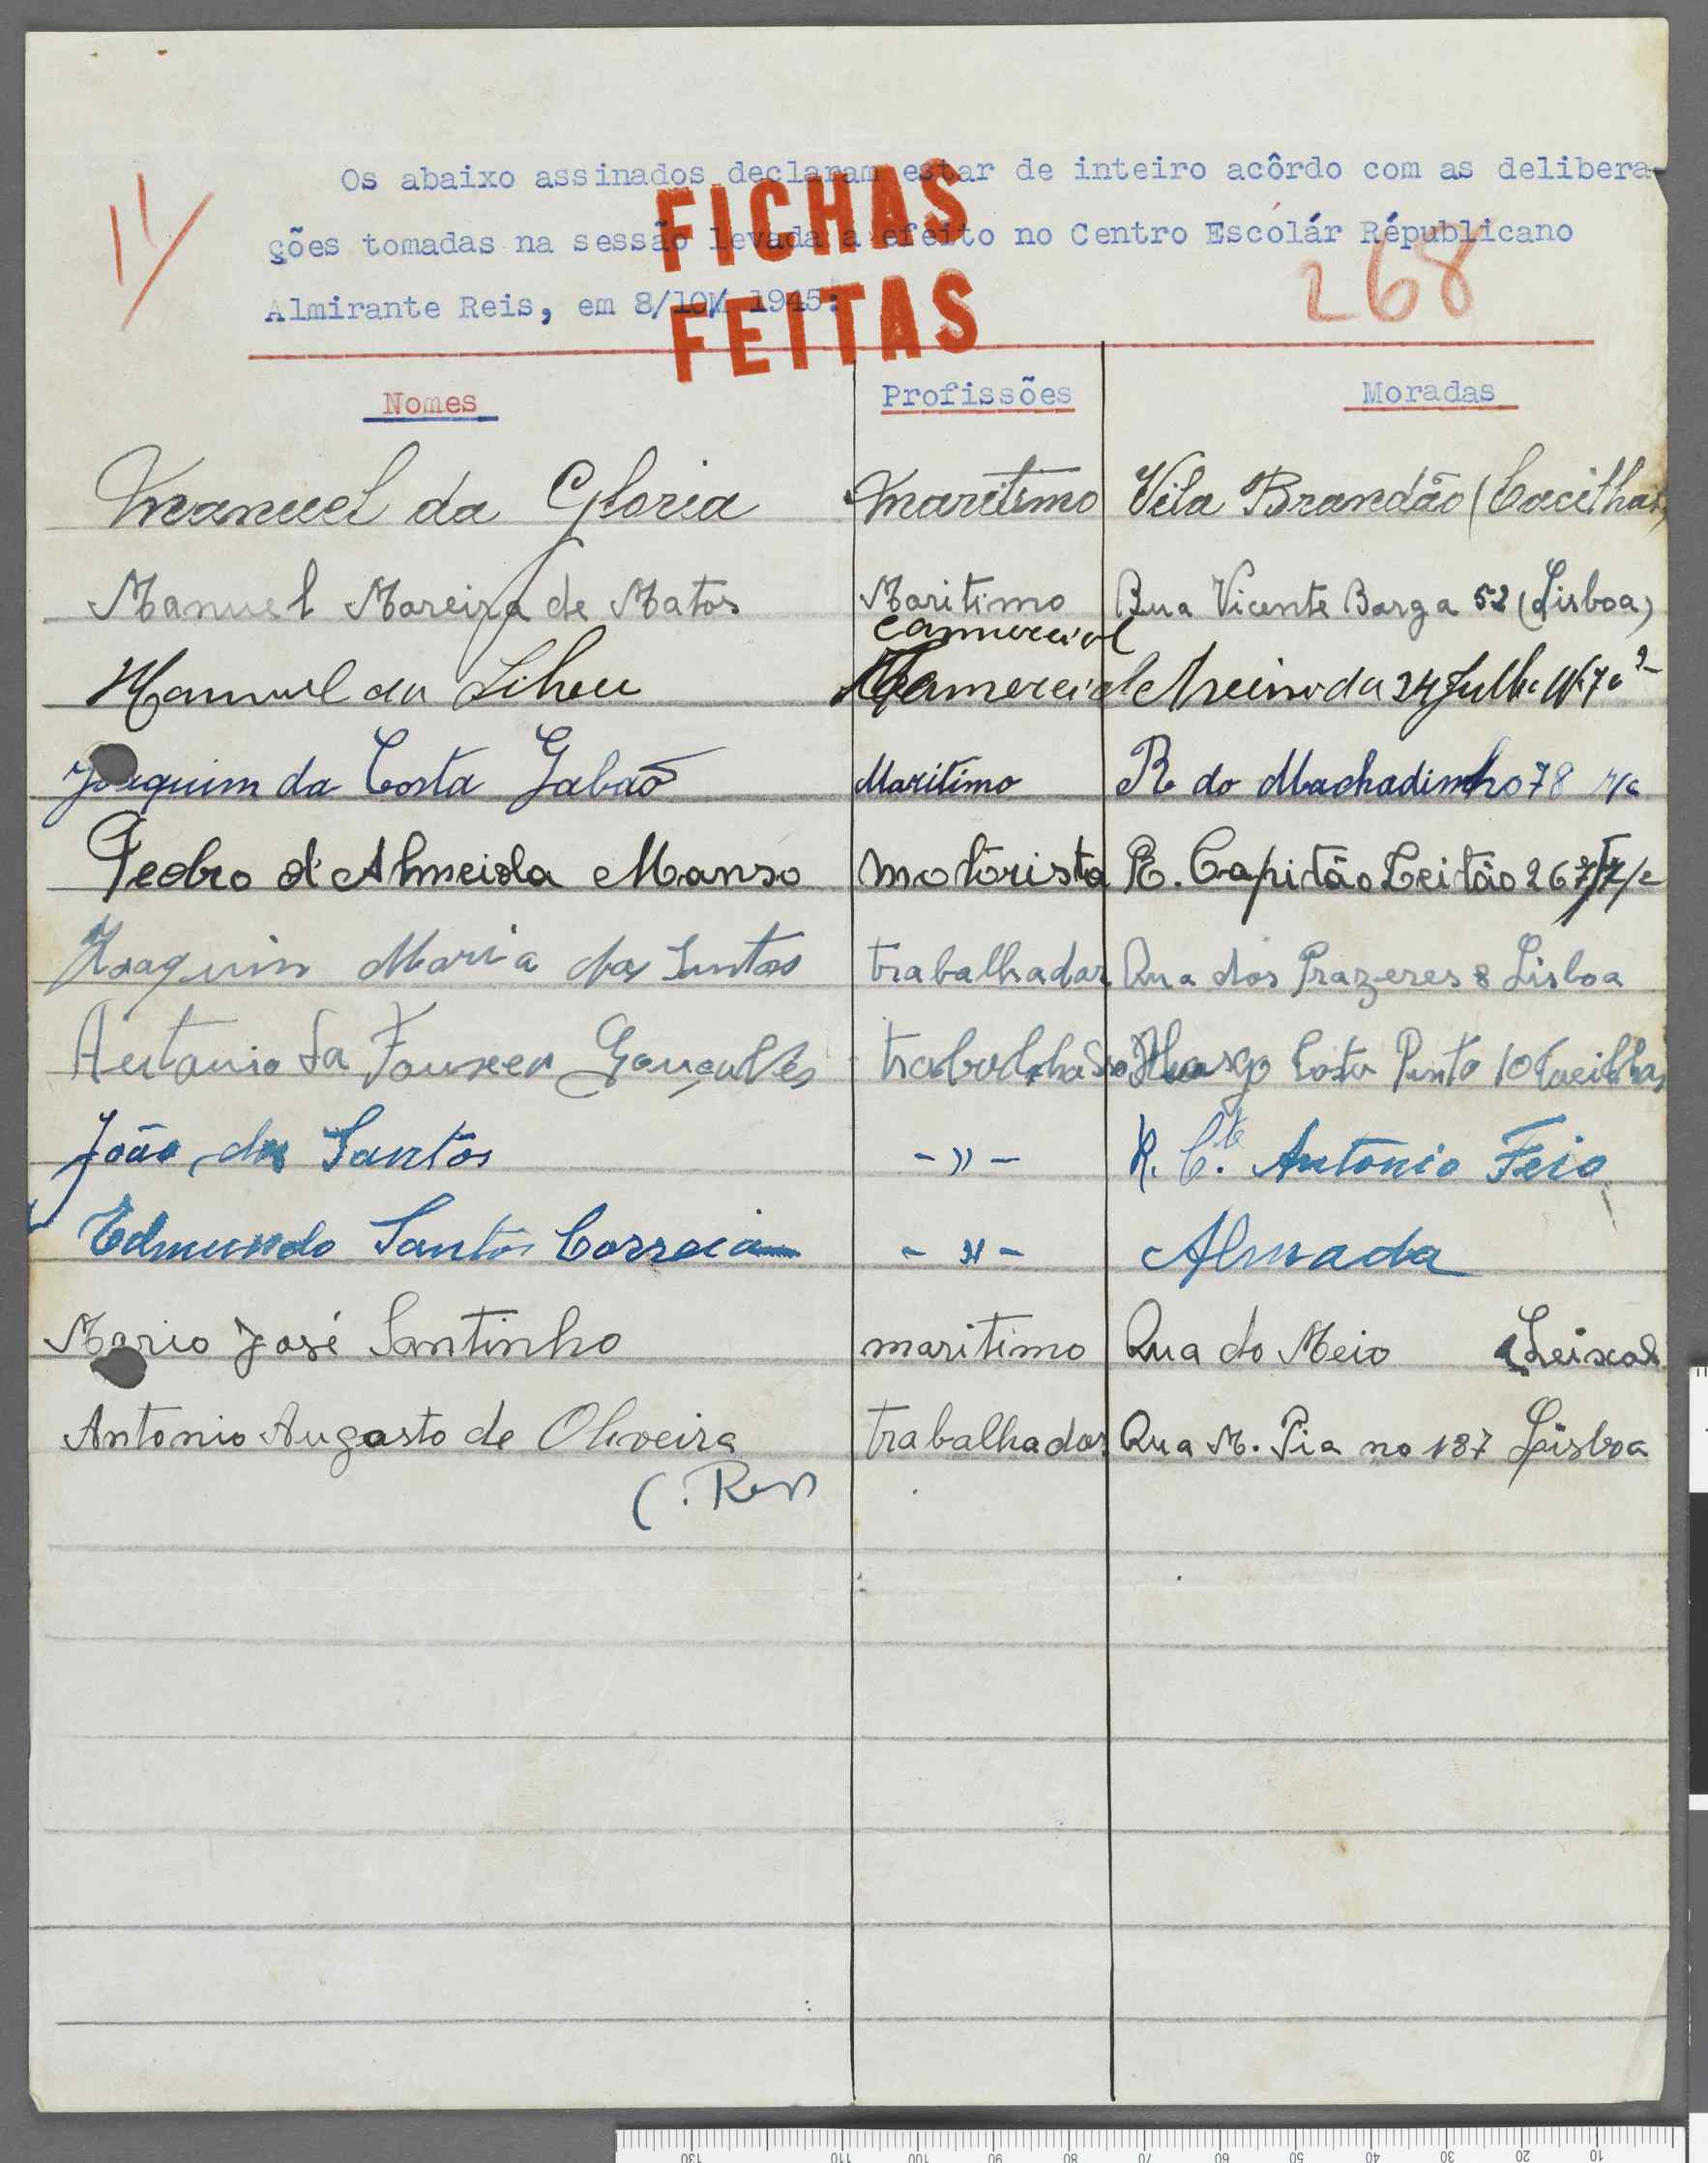 Os abaixo assinados declaram estar de inteiro acôrdo com as delibera-
ções tomadas na sessão levada a efeito no Centro Escolár Républicano
Almirante Reis, em 8/10/ 1945:
FICHAS
FEITAS
11
268
Nomes Profissões Moradas
Manuel da Gloria Maritimo Vila Brandão (Cacilhas)
Manuel Moreira de Matos Maritimo Rua Vicente Borga 52 (Lisboa)
Commercial
Manuel da 24 Julho
Joaquim da Costa Gabão Maritimo R do Machadinho 78 r/c
Pedro d'Almeida Manso motorista R. Capitão Leitão
Joaquim Maria dos Santos trabalhador Rua dos Prazeres 8 Lisboa
Antonio da Fonseca Gonçalves trabalhador Largo Costa Pinto 10 Cacilhas
João dos Santos -»- R. C.te Antonio Feio
Edmundo Santos Correia -»- Almada
Mario José Santinho maritimo Rua do Meio Seixal
Antonio Augosto de Oliveira trabalhador Rua M. Pia no 187 Lisboa